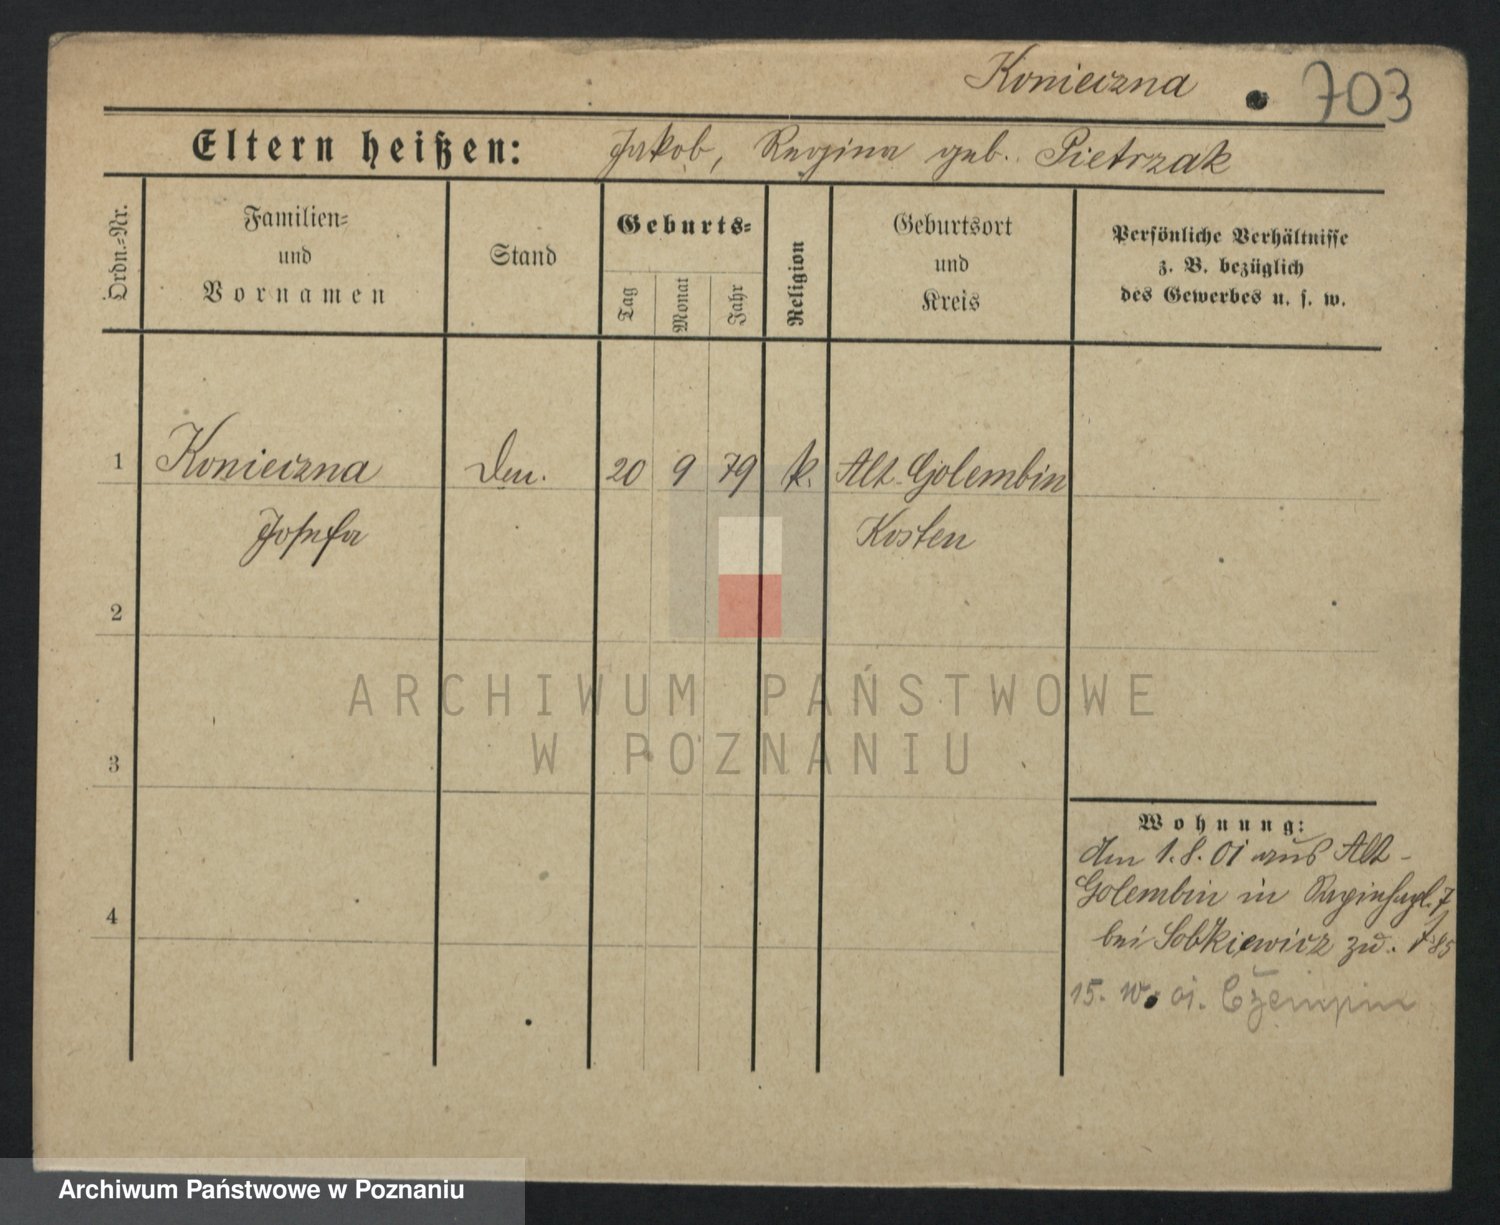 Konieczna 703
Eltern heißen: Jakob, Regina geb. Pietrzak
Ordn.=Nr.
Familien=
und
Vornamen
Stand
Geburts=
Tag
Monat
Jahr
Religion
Geburtsort
und
Kreis
Persönliche Verhältnisse
z. B. bezüglich
des Gewerbes u. s. w.
1 Konieczna 20 9 79 k. Alt-Golembin
Josefa Kosten
2
3
4
Wohnung:
Am 1.8.01 aus Alt-
Golembin in
bei Sobkiewicz zu.
15. 01. Czempin
ARCHIWUM PAŃSTWOWE
W POZNANIU
Archiwum Państwowe w Poznaniu